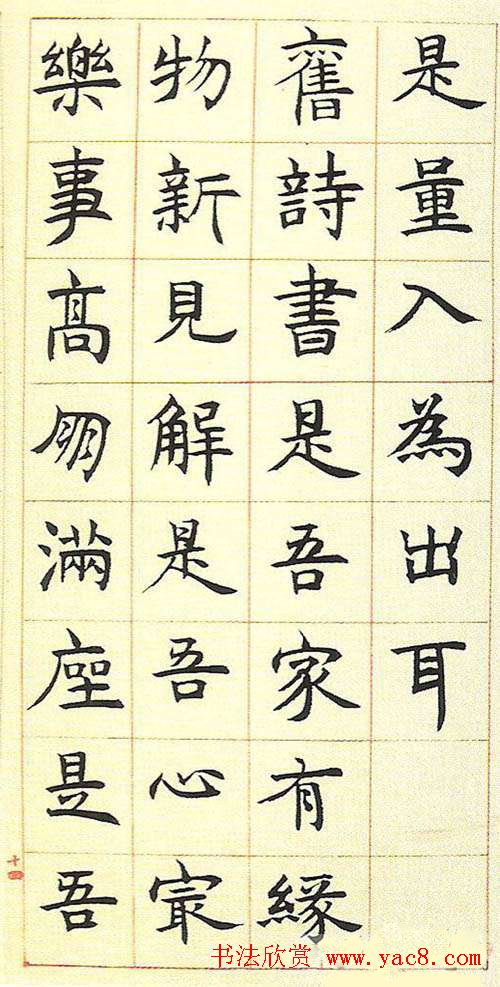 是量入為出耳
舊詩書是吾家有緣
物新見解是吾心最
樂事高明滿座是吾
十四
书法欣赏 www.yac8.com